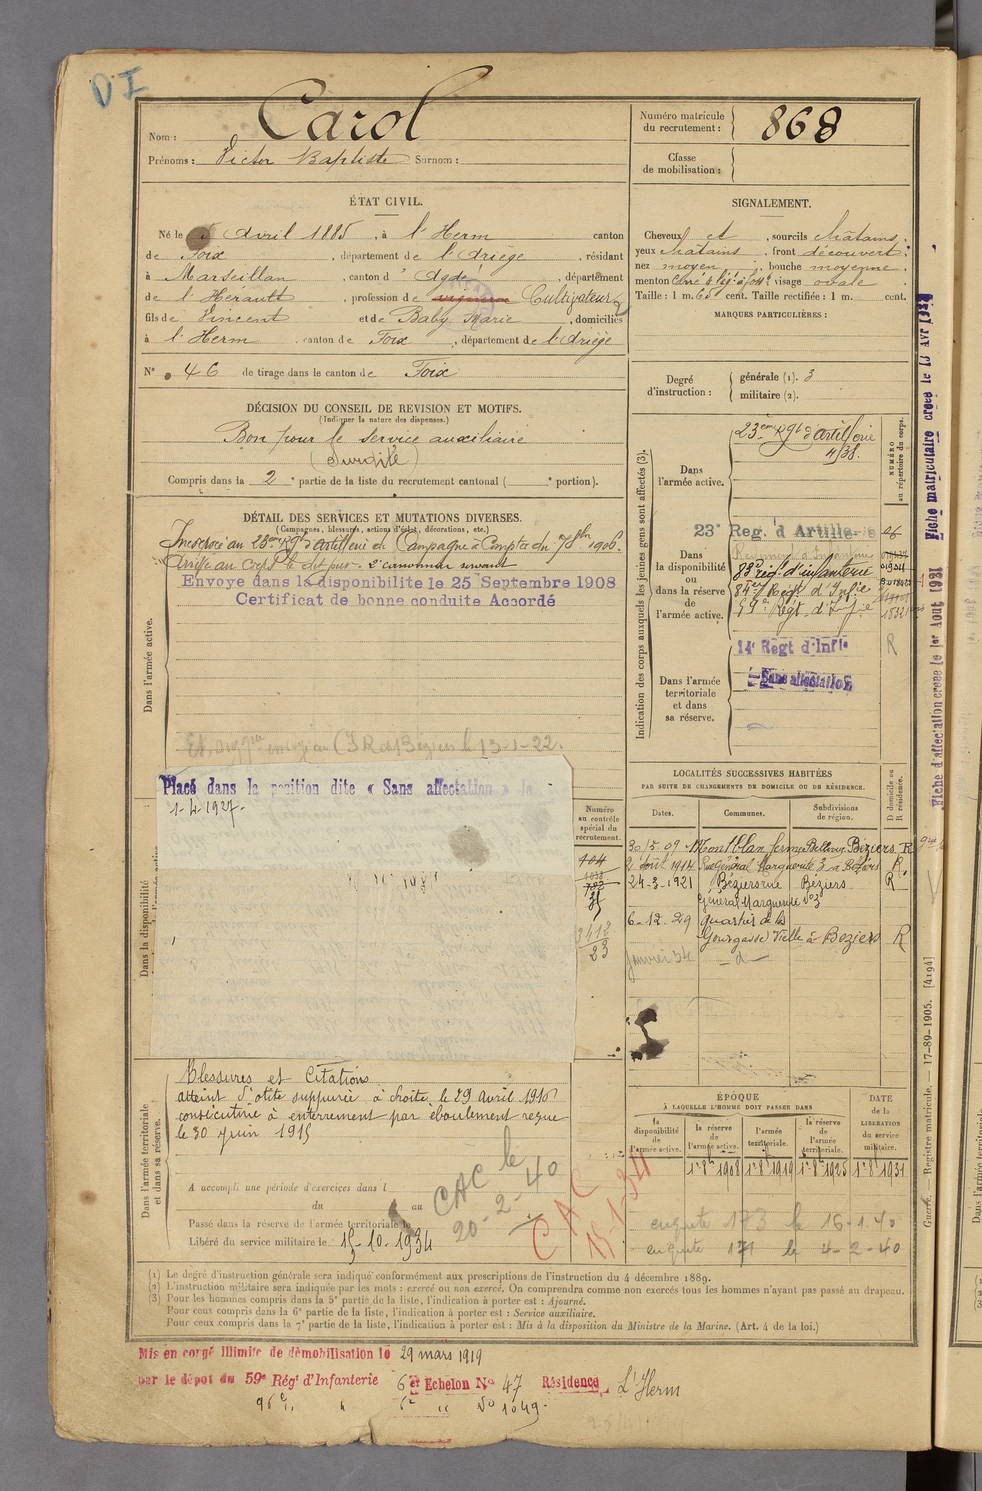 D I
Nom : Carol
Prénoms : Victor Baptiste Surnom :
Numéro matricule du recrutement : 868
Classe de mobilisation :
ÉTAT CIVIL.
Né le 5 Avril 1885, à l'Herm canton
de Foix, département de l'Ariège, résidant
à Marseillan, canton d'Agde, département
de l'Hérault, profession de vigneron Cultivateur
fils de Vincent et de Baby Marie, domiciliés
à l'Herm, canton de Foix, département de l'Ariège
N° 46 de tirage dans le canton de Foix
SIGNALEMENT.
Cheveux et, sourcils châtains,
yeux châtains, front découvert,
nez moyen, bouche moyenne,
menton visage ovale
Taille : 1 m. 65 cent. Taille rectifiée : 1 m. cent.
MARQUES PARTICULIÈRES :
Degré d'instruction : générale (1). 3
militaire (2).
DÉCISION DU CONSEIL DE REVISION ET MOTIFS.
(Indiquer la nature des dispenses.)
Bon pour le service auxiliaire
(Surdité)
Compris dans la 2e partie de la liste du recrutement cantonal ( e portion).
DÉTAIL DES SERVICES ET MUTATIONS DIVERSES.
(Campagnes, blessures, actions d'éclat, décorations, etc.)
Incorporé au 23ème Rgt d'artillerie de Campagne à Compter du 7 8bre 1906.
Arrivé au corps le dit jour 2e canonnier servant
Envoye dans la disponibilite le 25 Septembre 1908
Certificat de bonne conduite Accordé
Dans l'armée active.
Béziers le 13-1-22.
Placé dans la position dite « Sans affectation » le
1-4-1927.
Dans la disponibilité
Indication des corps auxquels les jeunes gens sont affectés (3).
NUMÉRO au répertoire du corps.
Dans l'armée active.
23ème Rgt d'artillerie
4/38.
Dans la disponibilité ou dans la réserve de l'armée active.
23e Reg. d'Artillerie
Régiment d'Infanterie
83e rég. d'infanterie
84e Regt d'Infie
59e Regt d'Infie
14e Regt d'Infie
R
Dans l'armée territoriale et dans sa réserve.
Sans affectation
LOCALITÉS SUCCESSIVES HABITÉES
PAR SUITE DE CHANGEMENTS DE DOMICILE OU DE RÉSIDENCE.
Numéro au contrôle spécial du recrutement.
Dates. Communes. Subdivisions de région. D domicile ou R résidence.
30/5.09 Montblanc ferme Bellevue Béziers R
2 août 1914 Rue Général Margueritte 3 à Béziers R.
24-3-1921 Béziers rue Béziers R
Général Margueritte N°3
6-12-29 quartier de la
Gourgasse Vieille à Beziers R
Janvier 34 - d -
3412
23
Blessures et Citations
atteint d'otite suppurée à droite, le 29 avril 1916
consécutive à enterrement par éboulement reçue
le 30 Juin 1915
Dans l'armée territoriale et dans sa réserve.
A accompli une période d'exercices dans l
du au
Passé dans la réserve de l'armée territoriale le
Libéré du service militaire le 15-10-1934
CAC le
20-2-40
CAC
15-1-34
ÉPOQUE
À LAQUELLE L'HOMME DOIT PASSER DANS
la disponibilité de l'armée active.
la réserve de l'armée active.
l'armée territoriale.
la réserve de l'armée territoriale.
DATE de la LIBÉRATION du service militaire.
1er 8bre 1908 1er 8bre 1919 1er 8bre 1925 1er 8bre 1931
enquete 173 le 16-1-40
enquete 171 le 4-2-40
(1) Le degré d'instruction générale sera indiqué conformément aux prescriptions de l'instruction du 4 décembre 1889.
(2) L'instruction militaire sera indiquée par les mots : exercé ou non exercé. On comprendra comme non exercés tous les hommes n'ayant pas passé au drapeau.
(3) Pour les hommes compris dans la 5e partie de la liste, l'indication à porter est : Ajourné.
Pour ceux compris dans la 6e partie de la liste, l'indication à porter est : Service auxiliaire.
Pour ceux compris dans la 7e partie de la liste, l'indication à porter est : Mis à la disposition du Ministre de la Marine. (Art. 4 de la loi.)
Mis en congé illimité de démobilisation le 29 mars 1919
par le dépot du 59e Régt d'Infanterie 6e Echelon No 47 Résidence L'Herm
96e " " 6e " No 1049.
Fiche matriculaire créée le 13 Avr 1942
Fiche d'affectation créée le 1er Aout 1931
Guerre. — Registre matricule. — 17-89-1905. [4194]